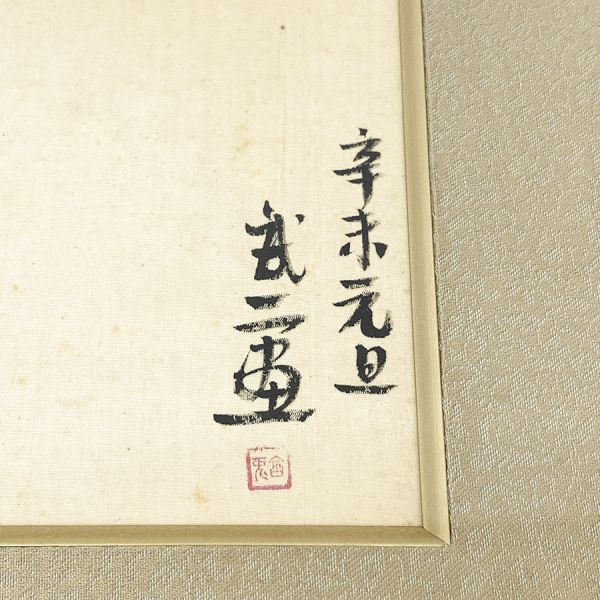 辛未元旦
武二画